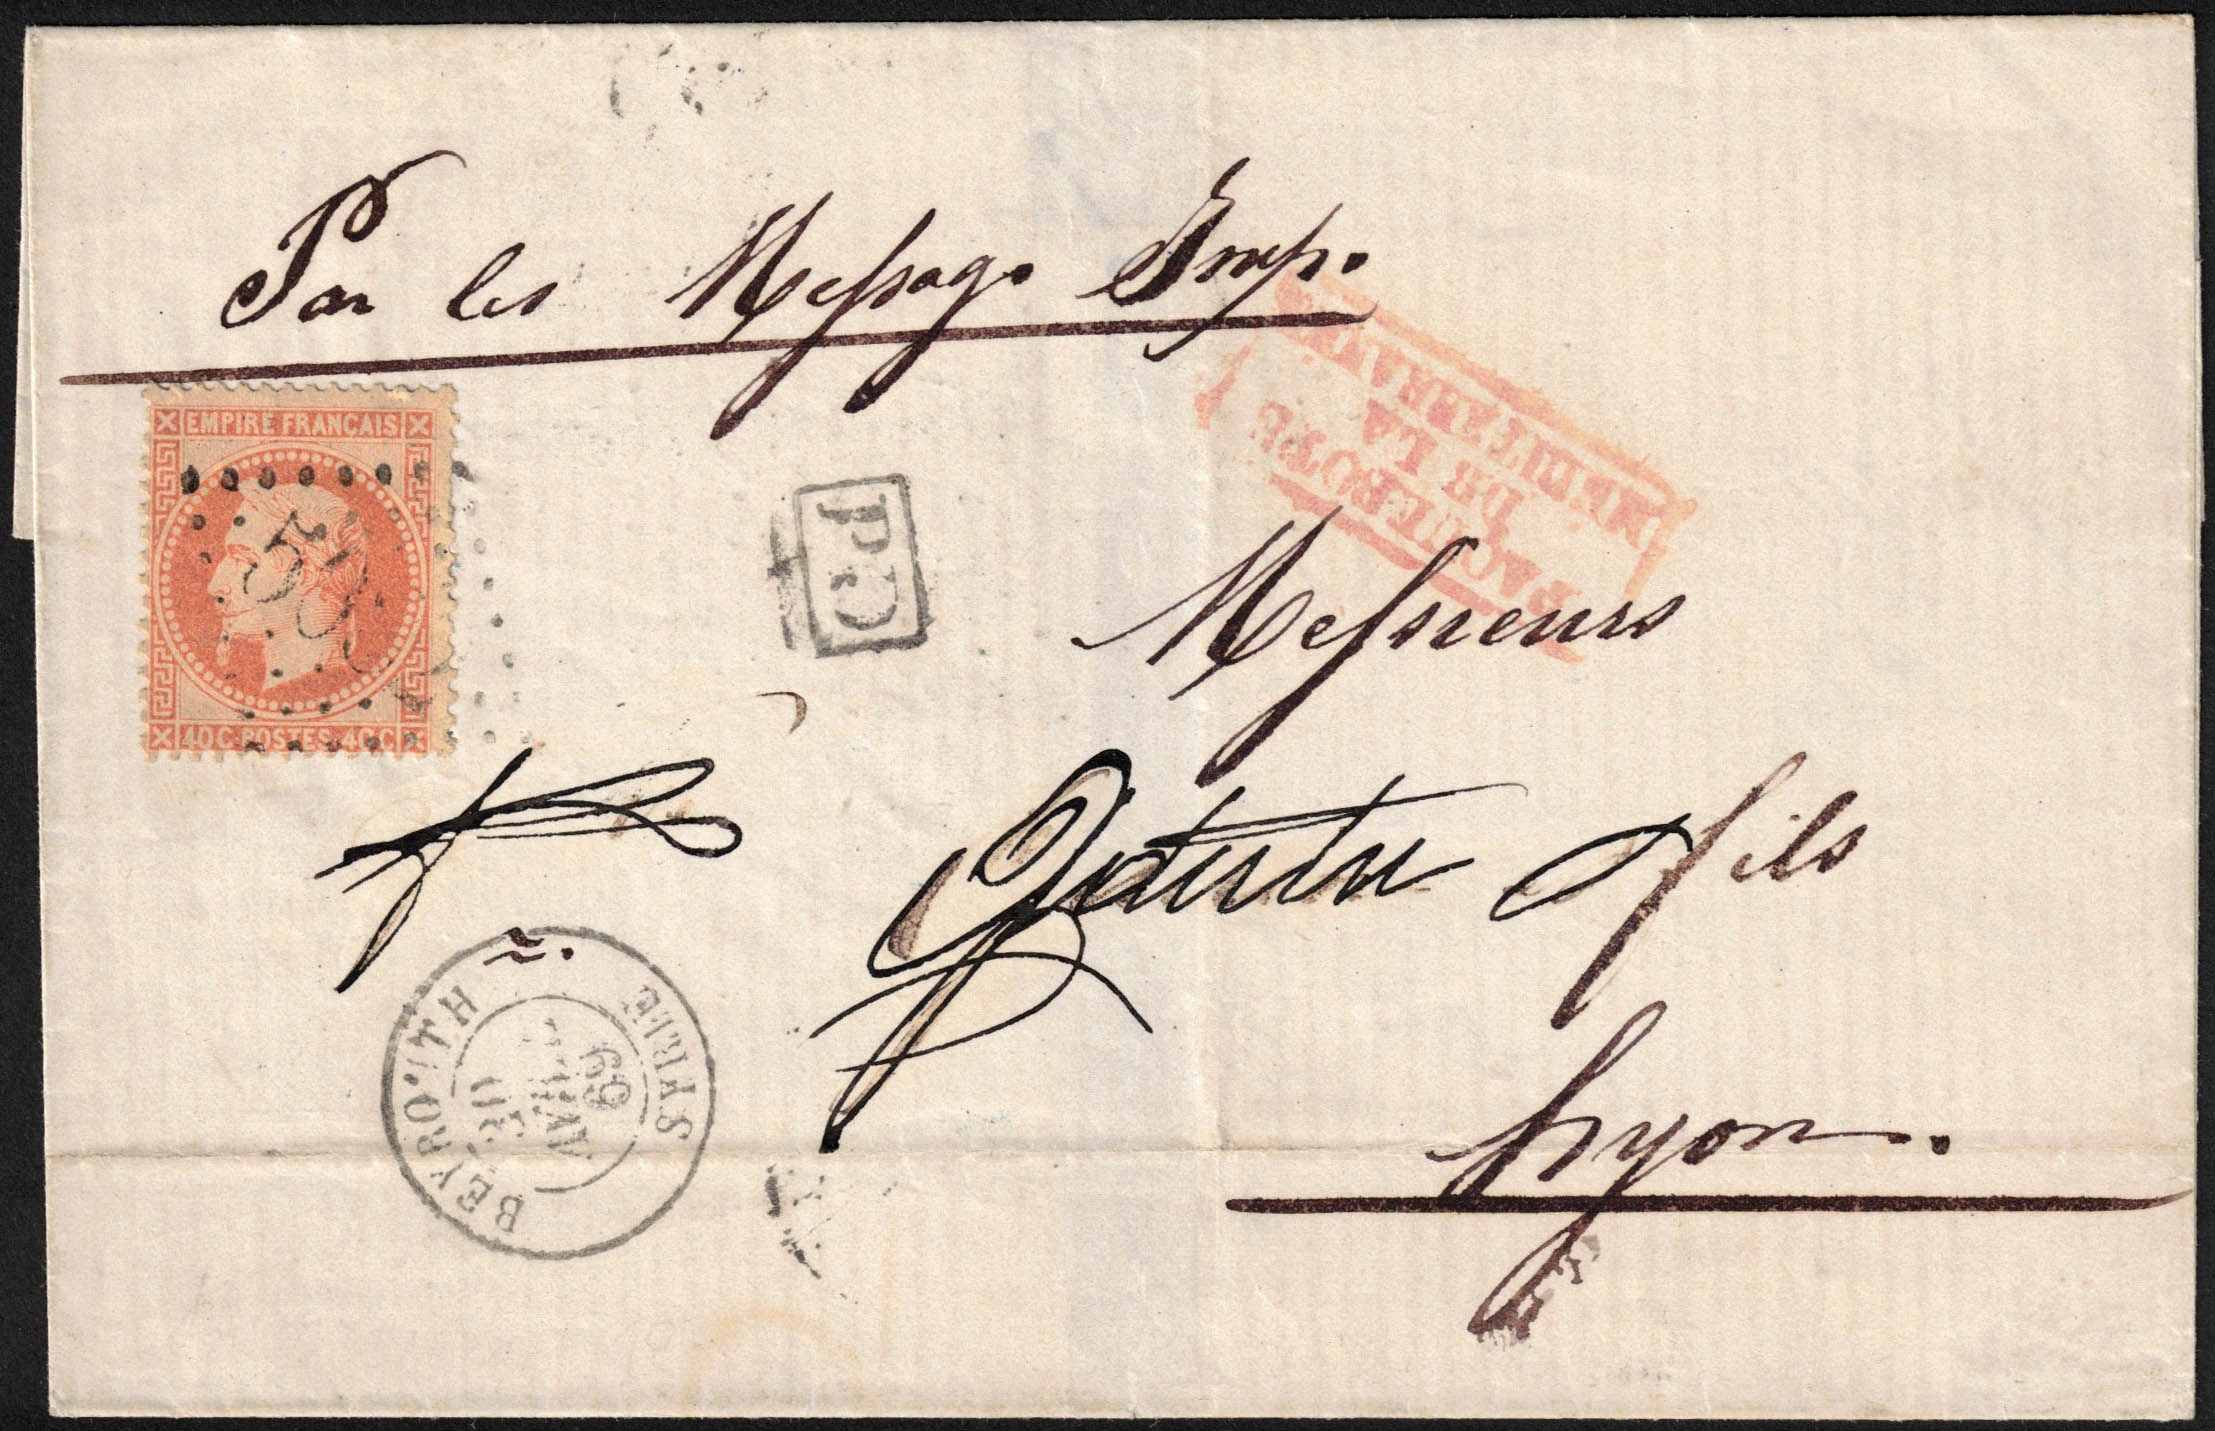 Par les Messag. Imp.
EMPIRE FRANÇAIS
40 C POSTES 40 C
PD
PAQUEBOTS
DE LA
MEDITERRANEE
Messieurs
fils
Lyon.
BEYROUTH
SYRIE
30
AVRIL
69